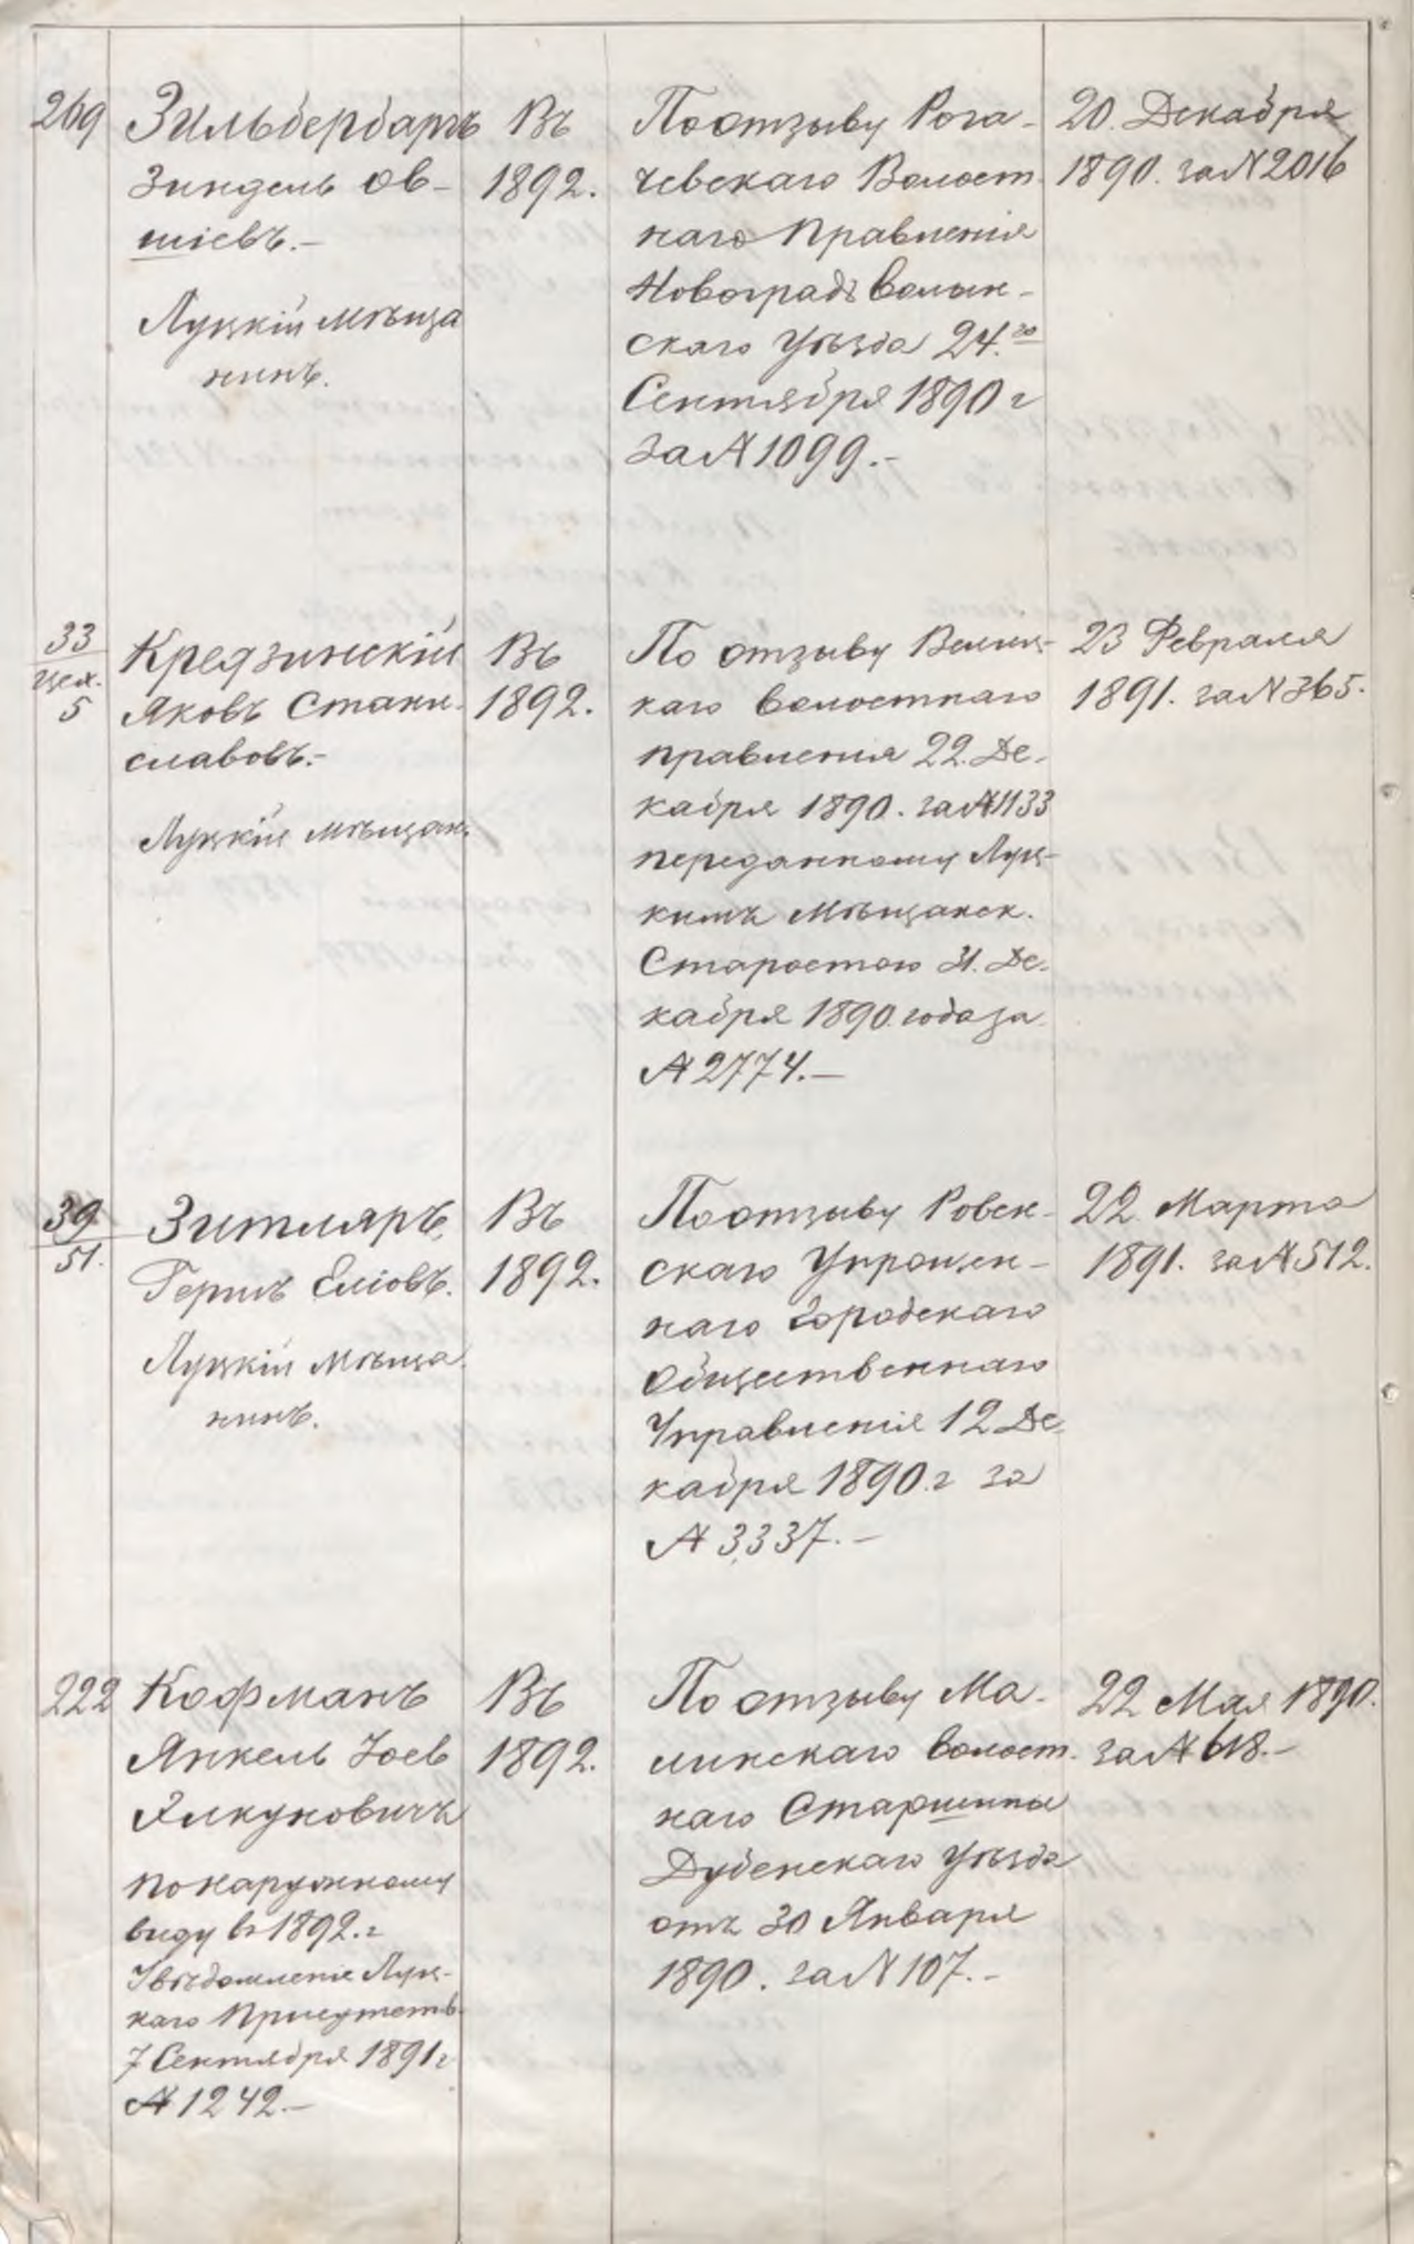 269
Зильбербартъ
Зиндель Ов-
шіевъ.-
Луцкій мѣща
нинъ.
Въ
1892.
По отзыву Рога-
чевскаго Волост
наго Правленія
Новоградъволын-
скаго уѣзда 24.го
Сентября 1890 г
за № 1099.-
20. Декабря
1890. за № 2016
33
цех.
5
Кредзинскій
Яковъ Стани-
славовъ.-
Луцкій мѣщан.
Въ
1892.
По отзыву
каго волостнаго
правленія 22. Де-
кабря 1890. за № 1133
переданному Луц-
кимъ Мѣщанск.
Старостою 31. Де-
кабря 1890 года за
№ 2774.-
23 Февраля
1891. за № 365.
39
51.
Зитляръ
Гершъ Еліовъ.
Луцкій мѣща
нинъ.
Въ
1892.
По отзыву Ровен-
скаго Упрощен-
наго городскаго
Общественнаго
Управленія 12 Де
кабря 1890.г за
№ 3337.-
22 Марта
1891. за № 512.
222
Кофманъ
Янкель Іоев
Элкуновичъ
по наружному
виду въ 1892.г
Увѣдомленіе Луц-
каго Присутств.
7 Сентября 1891 г
№ 1242.-
Въ
1892.
По отзыву Ма-
линскаго волост.
наго Старшины
Дубенскаго Уѣзда
отъ 30 Января
1890. за № 107.-
22 Мая 1890.
за № 618.-